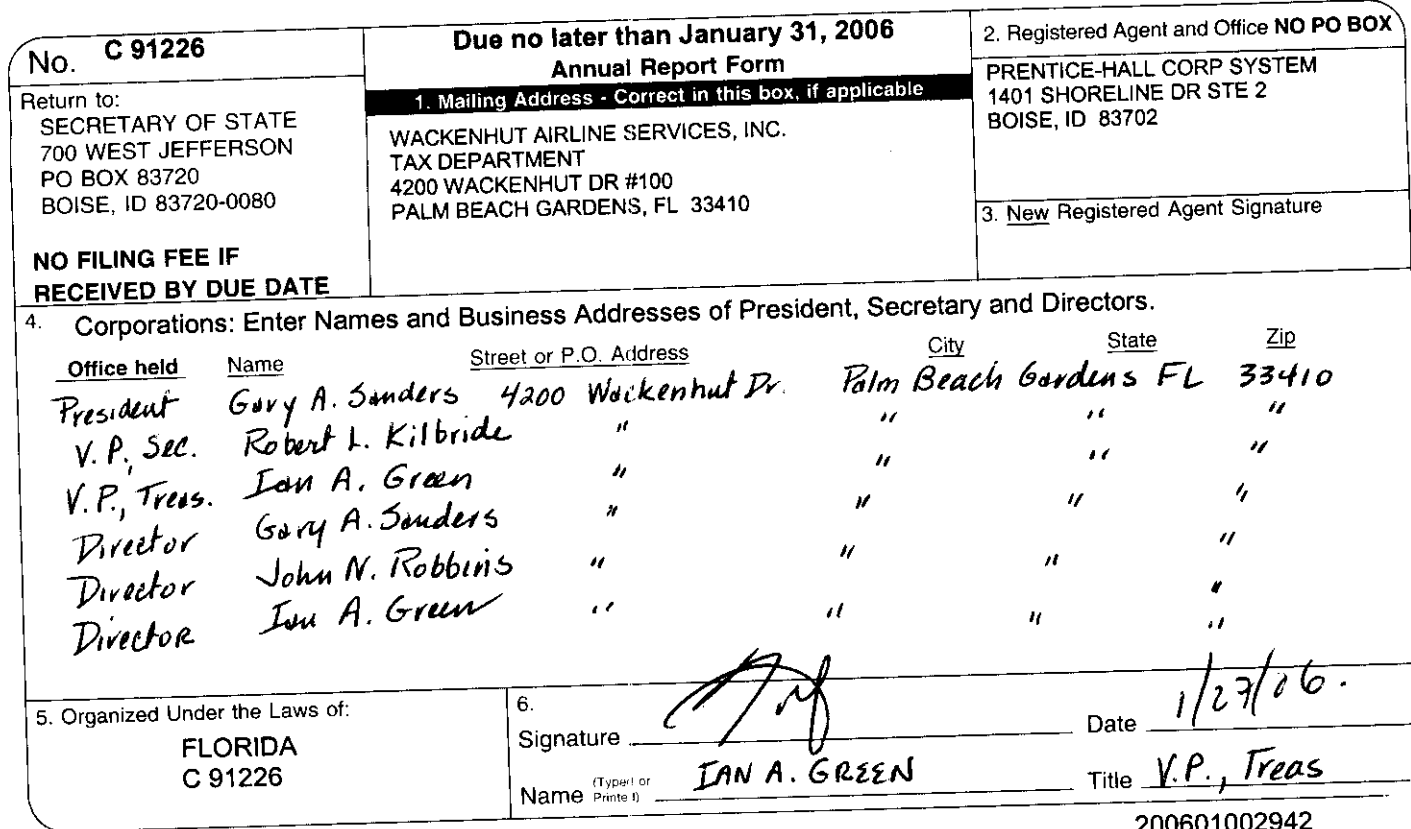 No. C 91226
Return to:
SECRETARY OF STATE
700 WEST JEFFERSON
PO BOX 83720
BOISE, ID 83720-0080
NO FILING FEE IF
RECEIVED BY DUE DATE
Due no later than January 31, 2006
Annual Report Form
1. Mailing Address - Correct in this box, if applicable
WACKENHUT AIRLINE SERVICES, INC.
TAX DEPARTMENT
4200 WACKENHUT DR #100
PALM BEACH GARDENS, FL 33410
2. Registered Agent and Office NO PO BOX
PRENTICE-HALL CORP SYSTEM
1401 SHORELINE DR STE 2
BOISE, ID 83702
3. New Registered Agent Signature
4. Corporations: Enter Names and Business Addresses of President, Secretary and Directors.
Office held Name Street or P.O. Address City State Zip
President Gary A. Sanders 4200 Wackenhut Dr. Palm Beach Gardens FL 33410
V.P., Sec. Robert L. Kilbride " " " "
V.P., Treas. Ian A. Green " " " "
Director Gary A. Sanders " " " "
Director John N. Robbins " " " "
Director Ian A. Green " " " "
"
5. Organized Under the Laws of:
FLORIDA
C 91226
6.
Signature Date 1/27/06.
Name (Typed or Printed) IAN A. GREEN Title V.P., Treas
200601002942